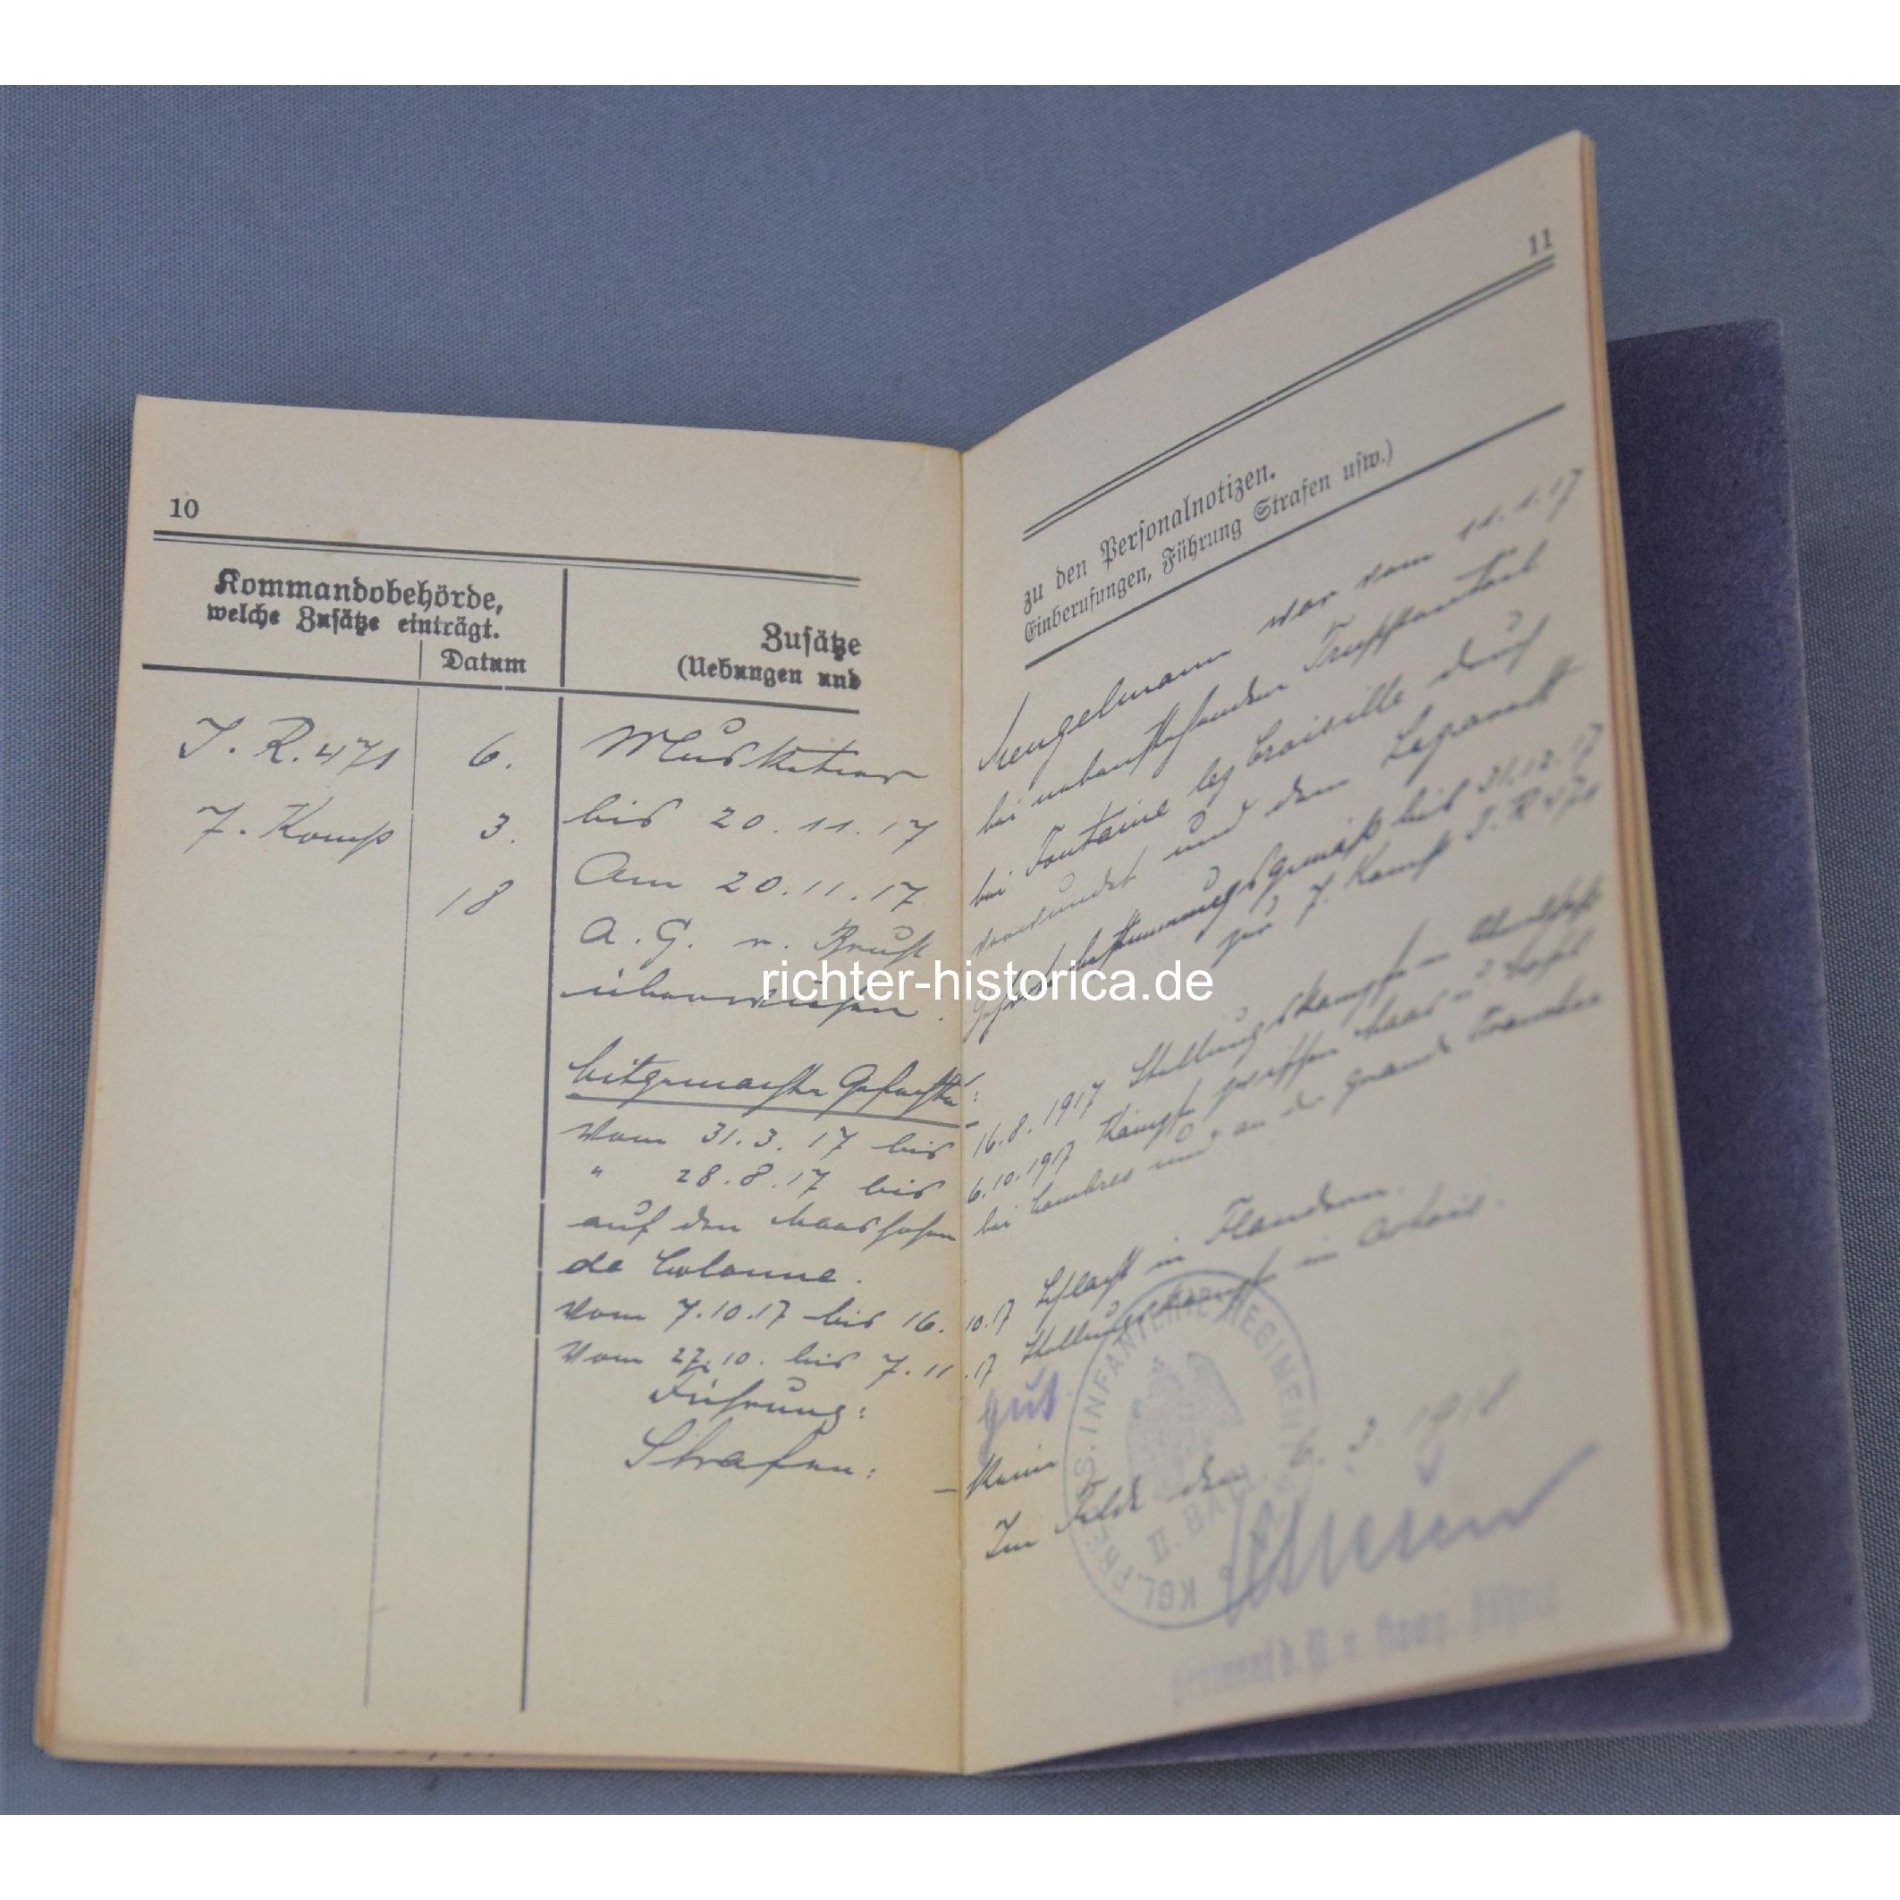 10
Kommandobehörde,
welche Zusätze einträgt.
Datum
Zusätze
(Uebungen und
J. R. 471
7. Komp
6.
3.
18
Musketier
bis 20.11.17
Am 20.11.17
A. G.
überwiesen.
Mitgemachte Gefechte:
Vom 31.3.17 bis
" 28.8.17 bis
auf den Maashöhen
de Calonne.
Vom 7.10.17 bis 16.
Vom 27.10. bis 7.11
Führung:
Strafen:
11
zu den Personalnotizen.
Einberufungen, Führung Strafen usw.)
war vom 11.1.17
bei nebenstehenden Truppenteil
bei Fontaine les Croisille durch
verwundet und dem Lazarett
bestimmungsgemäß bis 31.12.17
zur 7. Komp J. R 471
16.8.1917 Stellungskämpfe
6.10.1917 Kämpfe zwischen Maas u. Mosel
bei Combres und an der grande Tranchée
10.17 Schlacht in Flandern.
.17 Stellungskämpfe im Artois.
gut
– Keine
Im Felde den 6. 3. 1918
KGL. PREUSS. INFANTERIE REGIMENT
II. BATL
richter-historica.de